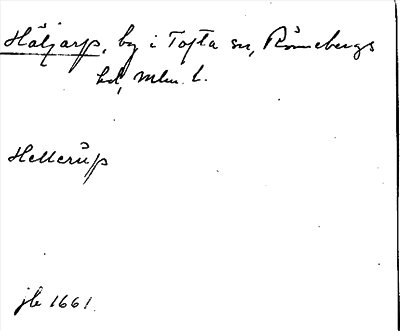 Häljarp, by i Tofta sn, Rönnebergs
hd, Mlm. l.
Hellerŭp
jb 1661